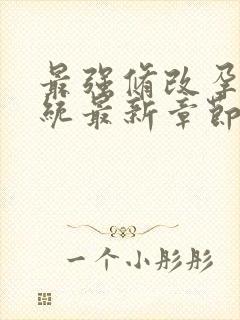 最强修改孕
统最新章节
一个小彤彤